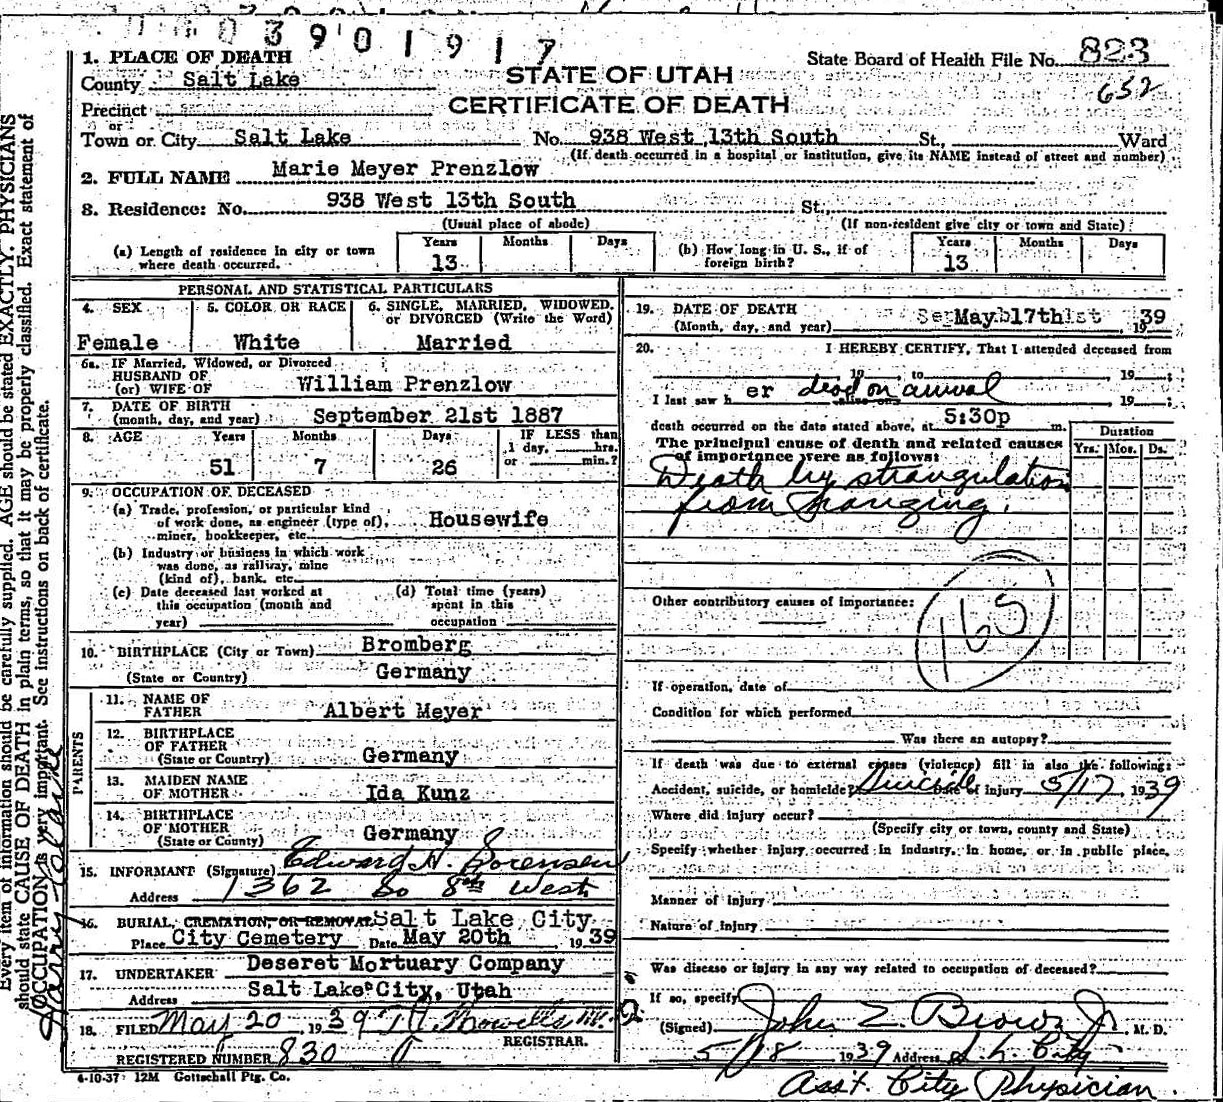 3901917
1. PLACE OF DEATH
State Board of Health File No. 823
County Salt Lake
STATE OF UTAH
652
Precinct
CERTIFICATE OF DEATH
or
Town or City Salt Lake No. 938 West 13th South St., Ward
(If death occurred in a hospital or institution, give its NAME instead of street and number)
2. FULL NAME Marie Meyer Prenzlow
3. Residence: No. 938 West 13th South St.
(Usual place of abode) (If non-resident give city or town and State)
(a) Length of residence in city or town where death occurred. Years 13 Months Days
(b) How long in U. S., if of foreign birth? Years 13 Months Days
PERSONAL AND STATISTICAL PARTICULARS
4. SEX Female
5. COLOR OR RACE White
6. SINGLE, MARRIED, WIDOWED, or DIVORCED (Write the Word) Married
6a. IF Married, Widowed, or Divorced
HUSBAND OF
(or) WIFE OF William Prenzlow
7. DATE OF BIRTH
(month, day, and year) September 21st 1887
8. AGE Years 51 Months 7 Days 26
IF LESS than 1 day, hrs. or min.?
9. OCCUPATION OF DECEASED
(a) Trade, profession, or particular kind of work done, as engineer (type of), miner, bookkeeper, etc. Housewife
(b) Industry or business in which work was done, as railway, mine (kind of), bank, etc.
(c) Date deceased last worked at this occupation (month and year)
(d) Total time (years) spent in this occupation
10. BIRTHPLACE (City or Town) Bromberg
(State or Country) Germany
PARENTS
11. NAME OF FATHER Albert Meyer
12. BIRTHPLACE OF FATHER (State or Country) Germany
13. MAIDEN NAME OF MOTHER Ida Kunz
14. BIRTHPLACE OF MOTHER (State or County) Germany
15. INFORMANT (Signature) Edward H. Sorensen
Address 1362 So 8th West
16. BURIAL, CREMATION, OR REMOVAL Salt Lake City
Place City Cemetery Date May 20th 1939
17. UNDERTAKER Deseret Mortuary Company
Address Salt Lake City, Utah
18. FILED May 20, 1939
REGISTRAR.
REGISTERED NUMBER 830
4-10-37 12M Gottschall Ptg. Co.
19. DATE OF DEATH
(Month, day, and year) May 17th 1939
20. I HEREBY CERTIFY, That I attended deceased from
19 to 19
I last saw h er dead on arrival 19
death occurred on the date stated above, at 5:30p m.
The principal cause of death and related causes of importance were as follows:
Duration
Yrs. Mos. Ds.
Death by strangulation
from hanging.
Other contributory causes of importance:
165
If operation, date of
Condition for which performed
Was there an autopsy?
If death was due to external causes (violence) fill in also the following:
Accident, suicide, or homicide? Suicide Date of injury 5/17 1939
Where did injury occur?
(Specify city or town, county and State)
Specify whether injury occurred in industry, in home, or in public place.
Manner of injury
Nature of injury
Was disease or injury in any way related to occupation of deceased?
If so, specify
(Signed) John Z. Brown Jr. M. D.
5/18 1939 Address S. L. City
Ass't. City Physician.
Every item of information should be carefully supplied. AGE should be stated EXACTLY. PHYSICIANS
should state CAUSE OF DEATH in plain terms, so that it may be properly classified. Exact statement of
OCCUPATION is very important. See instructions on back of certificate.